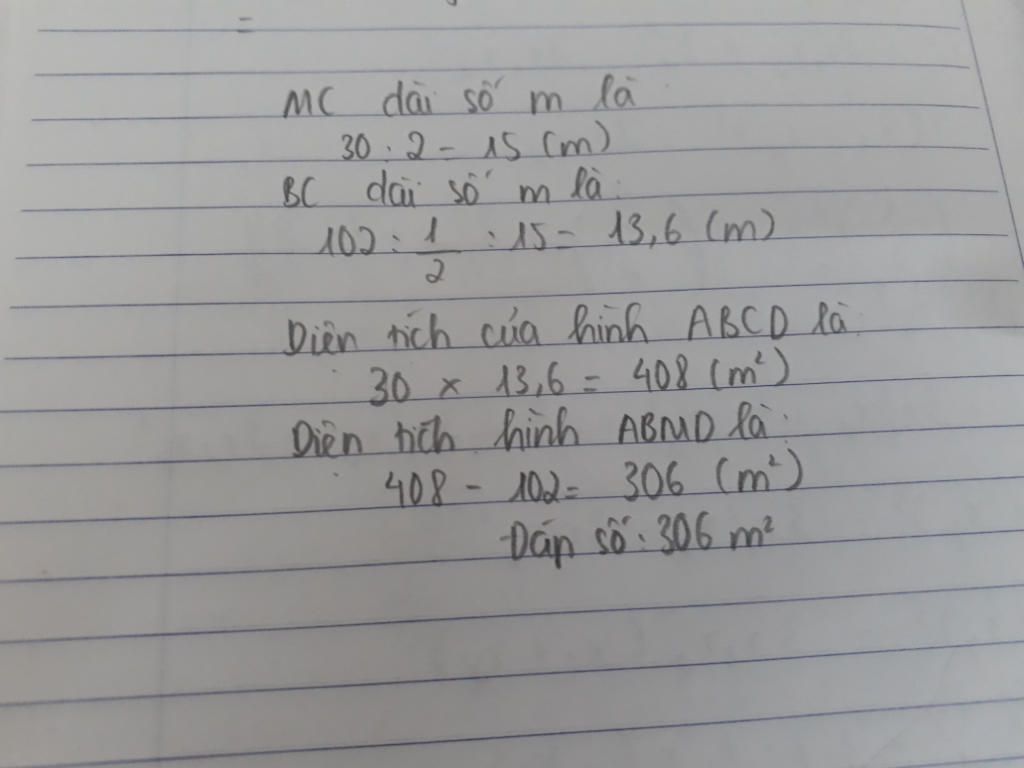 =
MC dài số m là
30 : 2 = 15 (m)
BC dài số m là:
102 : 1/2 : 15 = 13,6 (m)
Diện tích của hình ABCD là
30 × 13,6 = 408 (m²)
Diện tích hình ABMD là:
408 - 102 = 306 (m²)
Đáp số : 306 m²